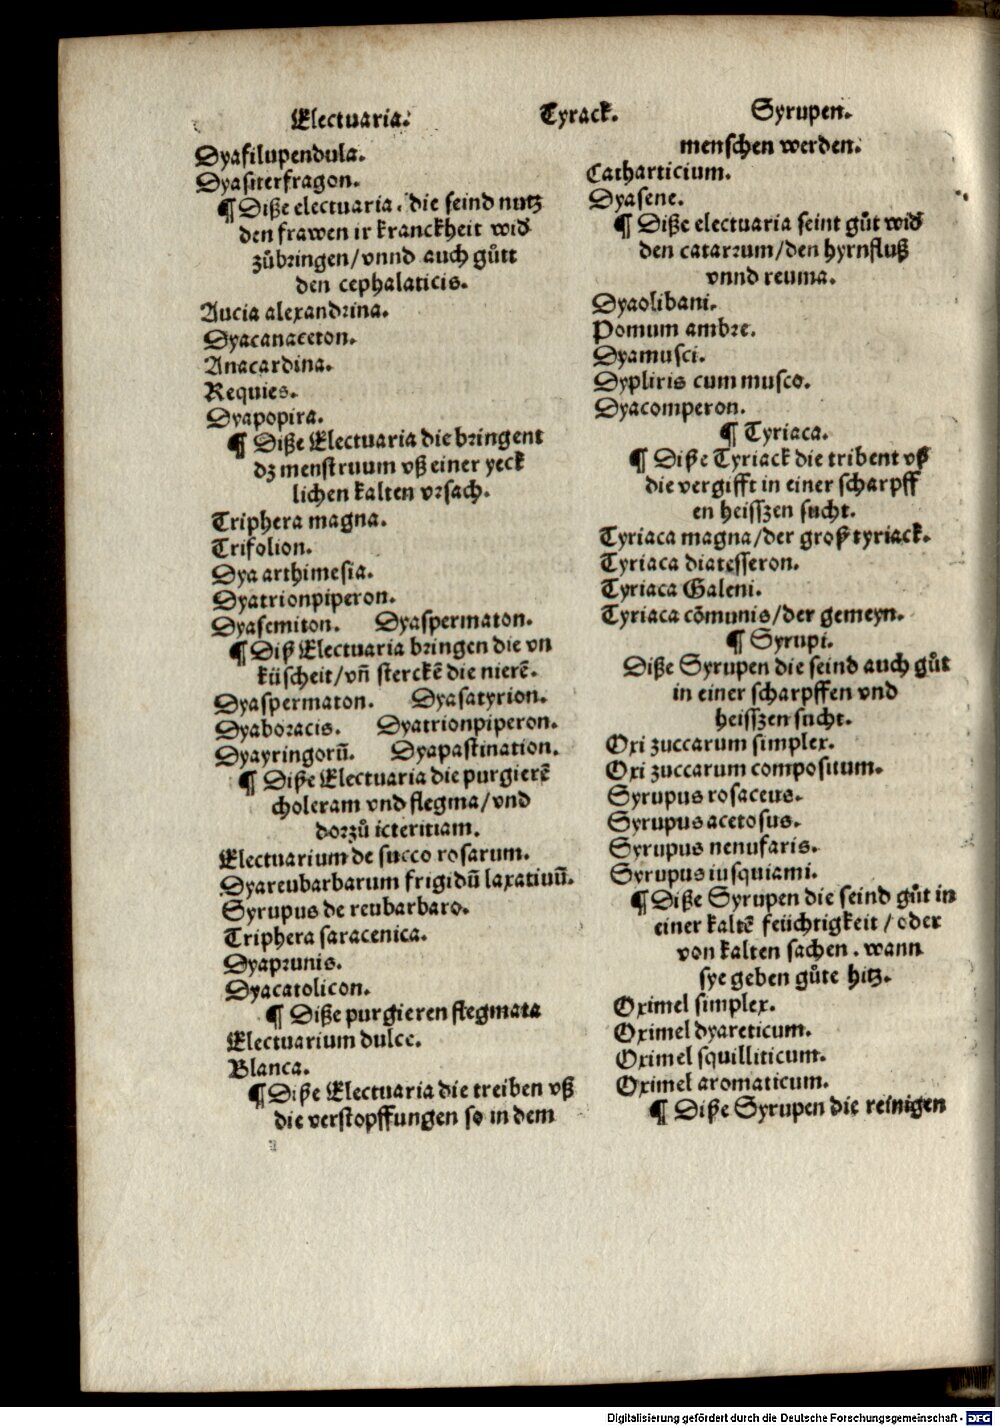 Electuaria. Tyrack. Syrupen.
Dyafilupendula.
Dyasiterfragon.
¶ Diße electuaria. die seind nutz
den frawen ir kranckheit wið
zůbringen/vnnd auch gůtt
den cephalaticis.
Aucia alexandrina.
Dyacanaceton.
Anacardina.
Requies.
Dyapopira.
¶ Diße Electuaria die bringent
dz menstruum vß einer yeck
lichen kalten vrsach.
Triphera magna.
Trifolion.
Dya arthimesia.
Dyatrionpiperon.
Dyasemiton. Dyaspermaton.
¶ Diß Electuaria bringen die vn
küscheit/vñ sterckē die nierē.
Dyaspermaton. Dyasatyrion.
Dyaboracis. Dyatrionpiperon.
Dyayringorū. Dyapastination.
¶ Diße Electuaria die purgierē
choleram vnd flegma/vnd
dorzů icteritiam.
Electuarium de succo rosarum.
Dyareubarbarum frigidū laxatiuū.
Syrupus de reubarbaro.
Triphera saracenica.
Dyaprunis.
Dyacatolicon.
¶ Diße purgieren flegmata
Electuarium dulce.
Blanca.
¶ Diße Electuaria die treiben vß
die verstopffungen so in dem
menschen werden.
Catharticium.
Dyasene.
¶ Diße electuaria seint gůt wið
den catarrum/den hyrnfluß
vnnd reuma.
Dyaolibani.
Pomum ambre.
Dyamusci.
Dypliris cum musco.
Dyacomperon.
¶ Tyriaca.
¶ Diße Tyriack die tribent vß
die vergifft in einer scharpff
en heisszen sucht.
Tyriaca magna/der groß tyriack.
Tyriaca diatesseron.
Tyriaca Galeni.
Tyriaca cōmunis/der gemeyn.
¶ Syrupi.
Diße Syrupen die seind auch gůt
in einer scharpffen vnd
heisszen sucht.
Oxi zuccarum simplex.
Oxi zuccarum compositum.
Syrupus rosaceus.
Syrupus acetosus.
Syrupus nenufaris.
Syrupus iusquiami.
¶ Diße Syrupen die seind gůt in
einer kaltē feüchtigkeit / oder
von kalten sachen. wann
sye geben gůte hitz.
Oximel simplex.
Oximel dyareticum.
Oximel squilliticum.
Oximel aromaticum.
¶ Diße Syrupen die reinigen
Digitalisierung gefördert durch die Deutsche Forschungsgemeinschaft - DFG